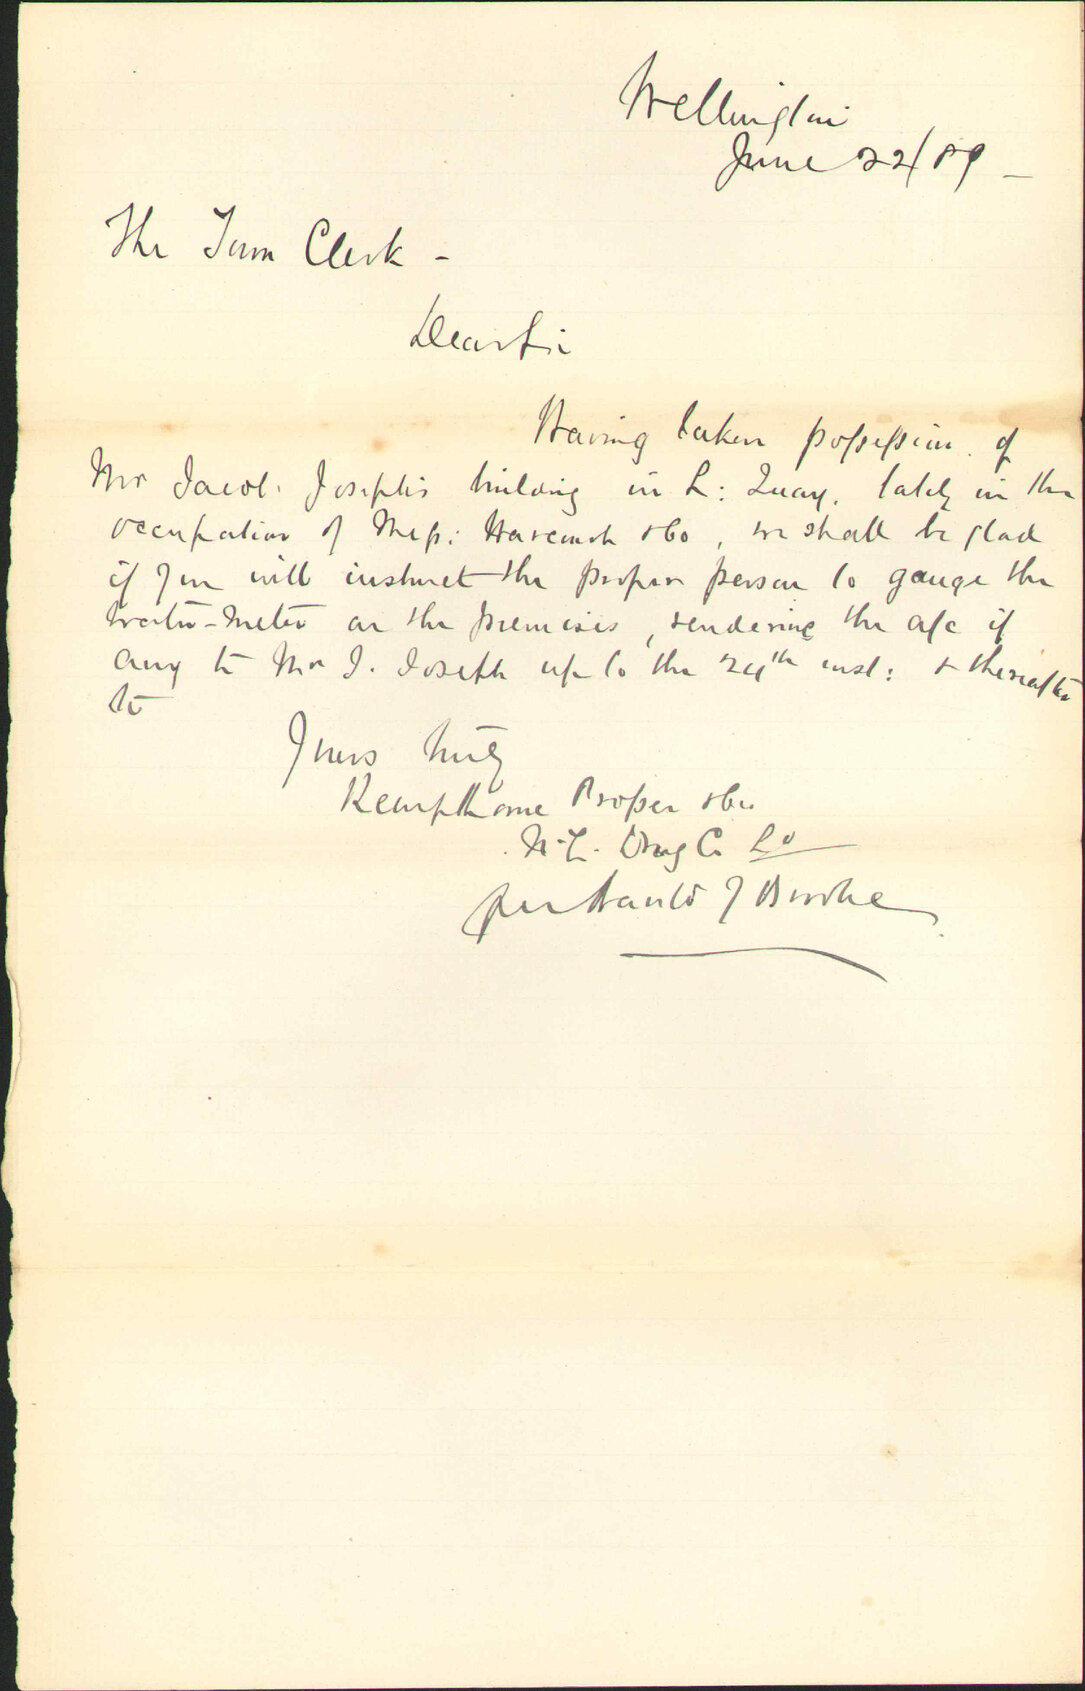 Wellington
June 22/89 -
The Town Clerk -
Dear Sir
Having taken possession of
Mr Jacob Joseph's building in L: Quay, lately in the
occupation of Mess: & Co, we shall be glad
if you will instruct the proper person to gauge the
water-meter on the premises, rendering the a/c if
any to Mr J. Joseph up to the 24th inst: & thereafter
to
Yours truly
Kempthorne Prosser & Co
N.Z. Drug Co Ld
per